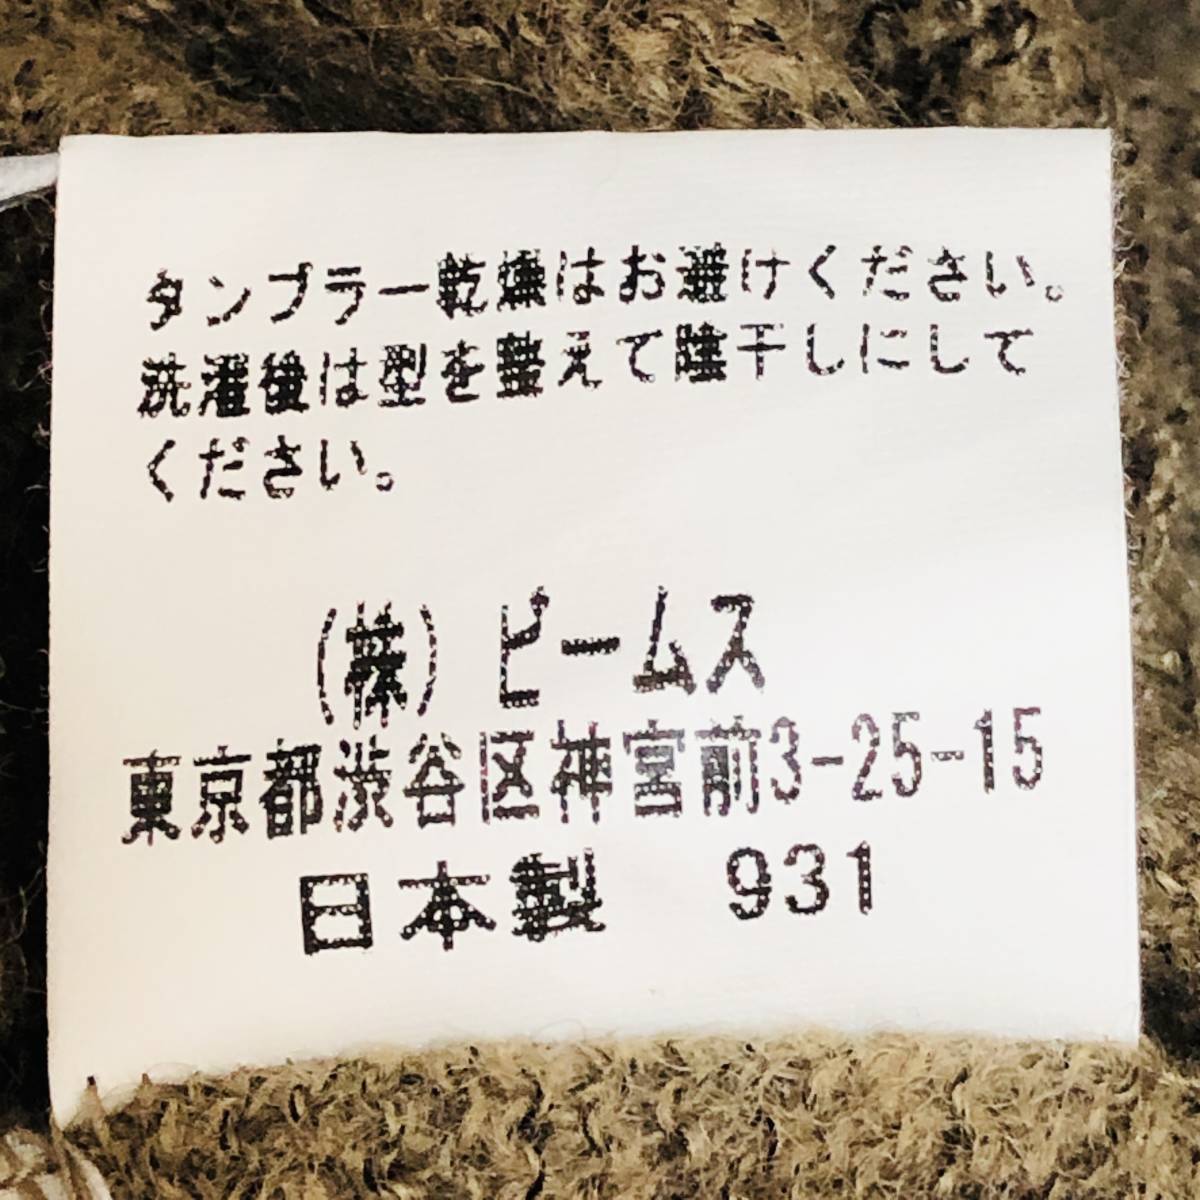 タンブラー乾燥はお避けください。
洗濯後は型を整えて陰干しにして
ください。
(株) ビームス
東京都渋谷区神宮前3-25-15
日本製 931